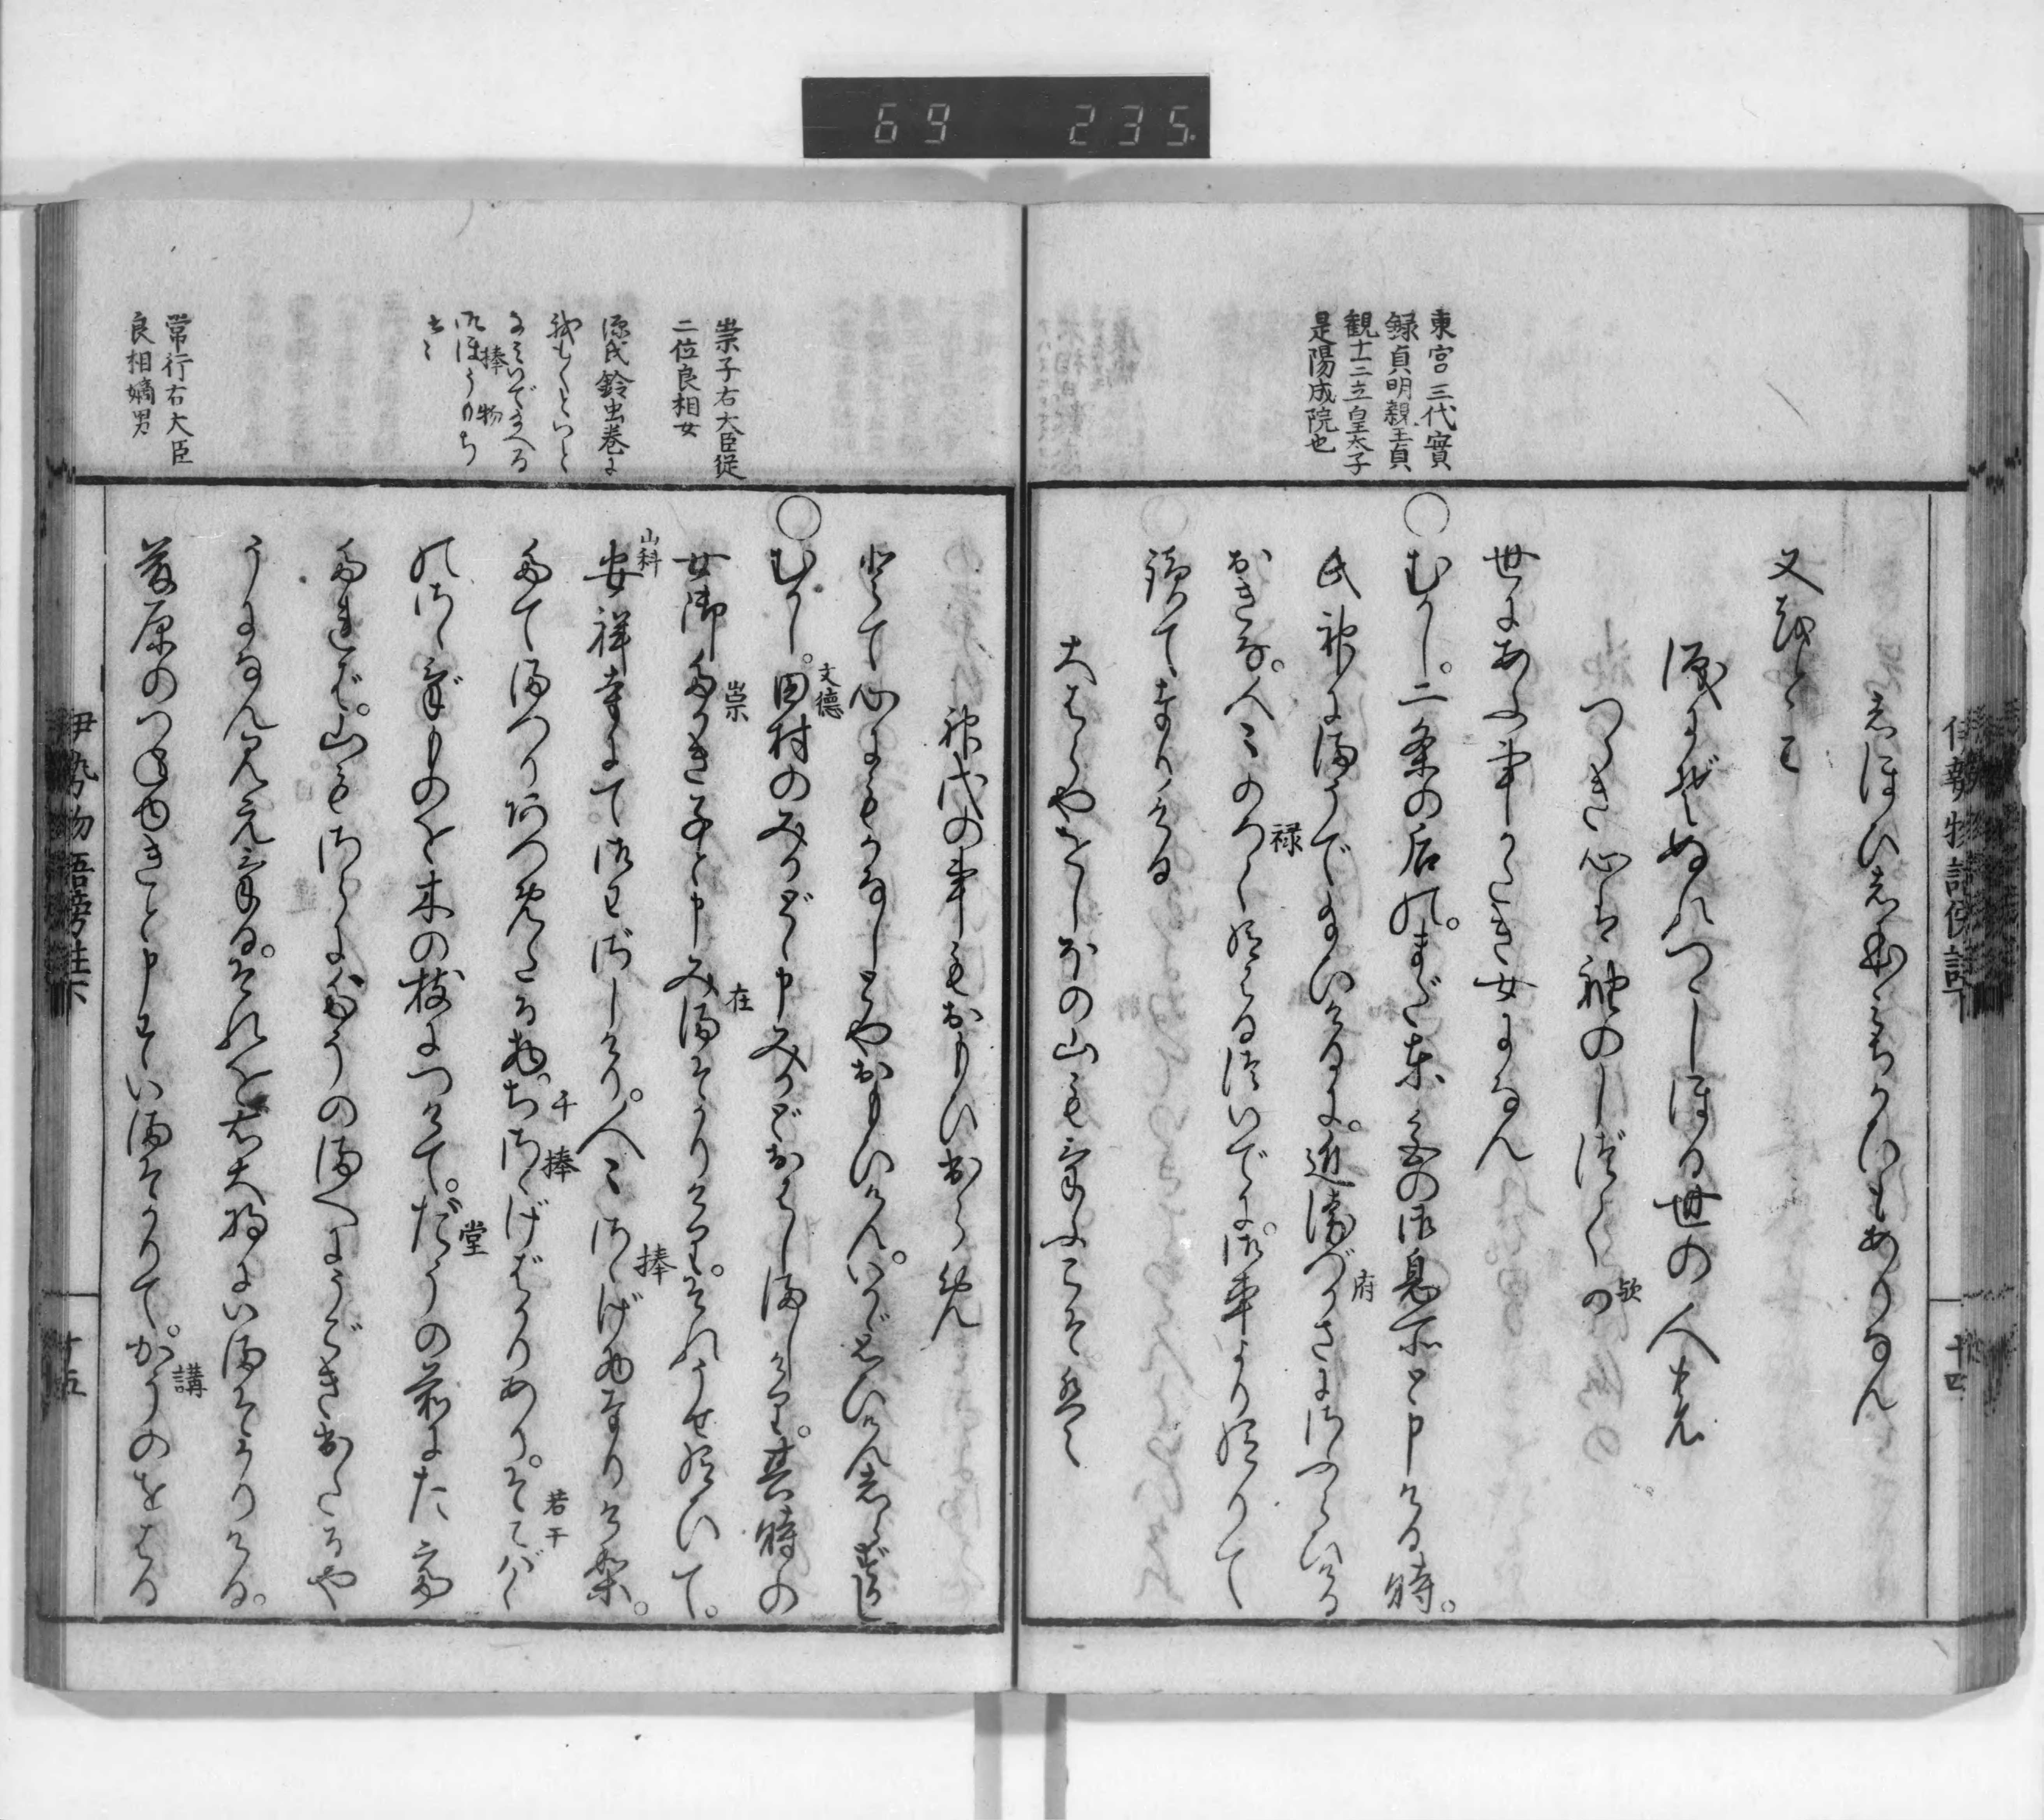 69 235.
伊勢物語傍註下
十四
しほひしほみちかひもありなん
又おとこ
涙にぞぬれつゝしぼる世の人の
つらき心は袖のしづくの
歟
世にあふ事かたき女になん
東宮 三代實
録貞明親王貞
観十一二立皇太子
是陽成院也
○むかし。二条の后の。まだ東宮の御息所と申ける時。
氏神にまうで給ひけるに。近衛づかさにさふらひける
府
おきな。人々のろく給はる次いでに。御車より給りて
禄
讀て奉りける
大はらやをしほの山もけふこそは
神代の事もおもひ出らめ
とて心にもかなしとやおもひけん。いかゞ思ひけんしらずかし
○むかし。田村のみかどゝ申みかどおはしましけり。其時の
文德
女御たかき子と申みまそかりけり。それうせ給ひて。
崇
在
安祥寺にてみわざしけり。人々さゝげ物奉りけり。
山科
捧
奉りあつめたる物。ちさゝげばかりあり。そこばく
千
捧
若干
のさゝげものを木の枝につけて。だうの前にたて
堂
たれば。山もさらにだうのまへにうごき出たるや
うになん見えける。それを右大将にいまそかりける。
藤原のつねゆきと申すいまそかりて。かうのをはる
講
崇子右大臣従
二位良相女
源氏鈴虫巻に
捧物
常行右大臣
良相嫡男
伊勢物語傍註下
十五